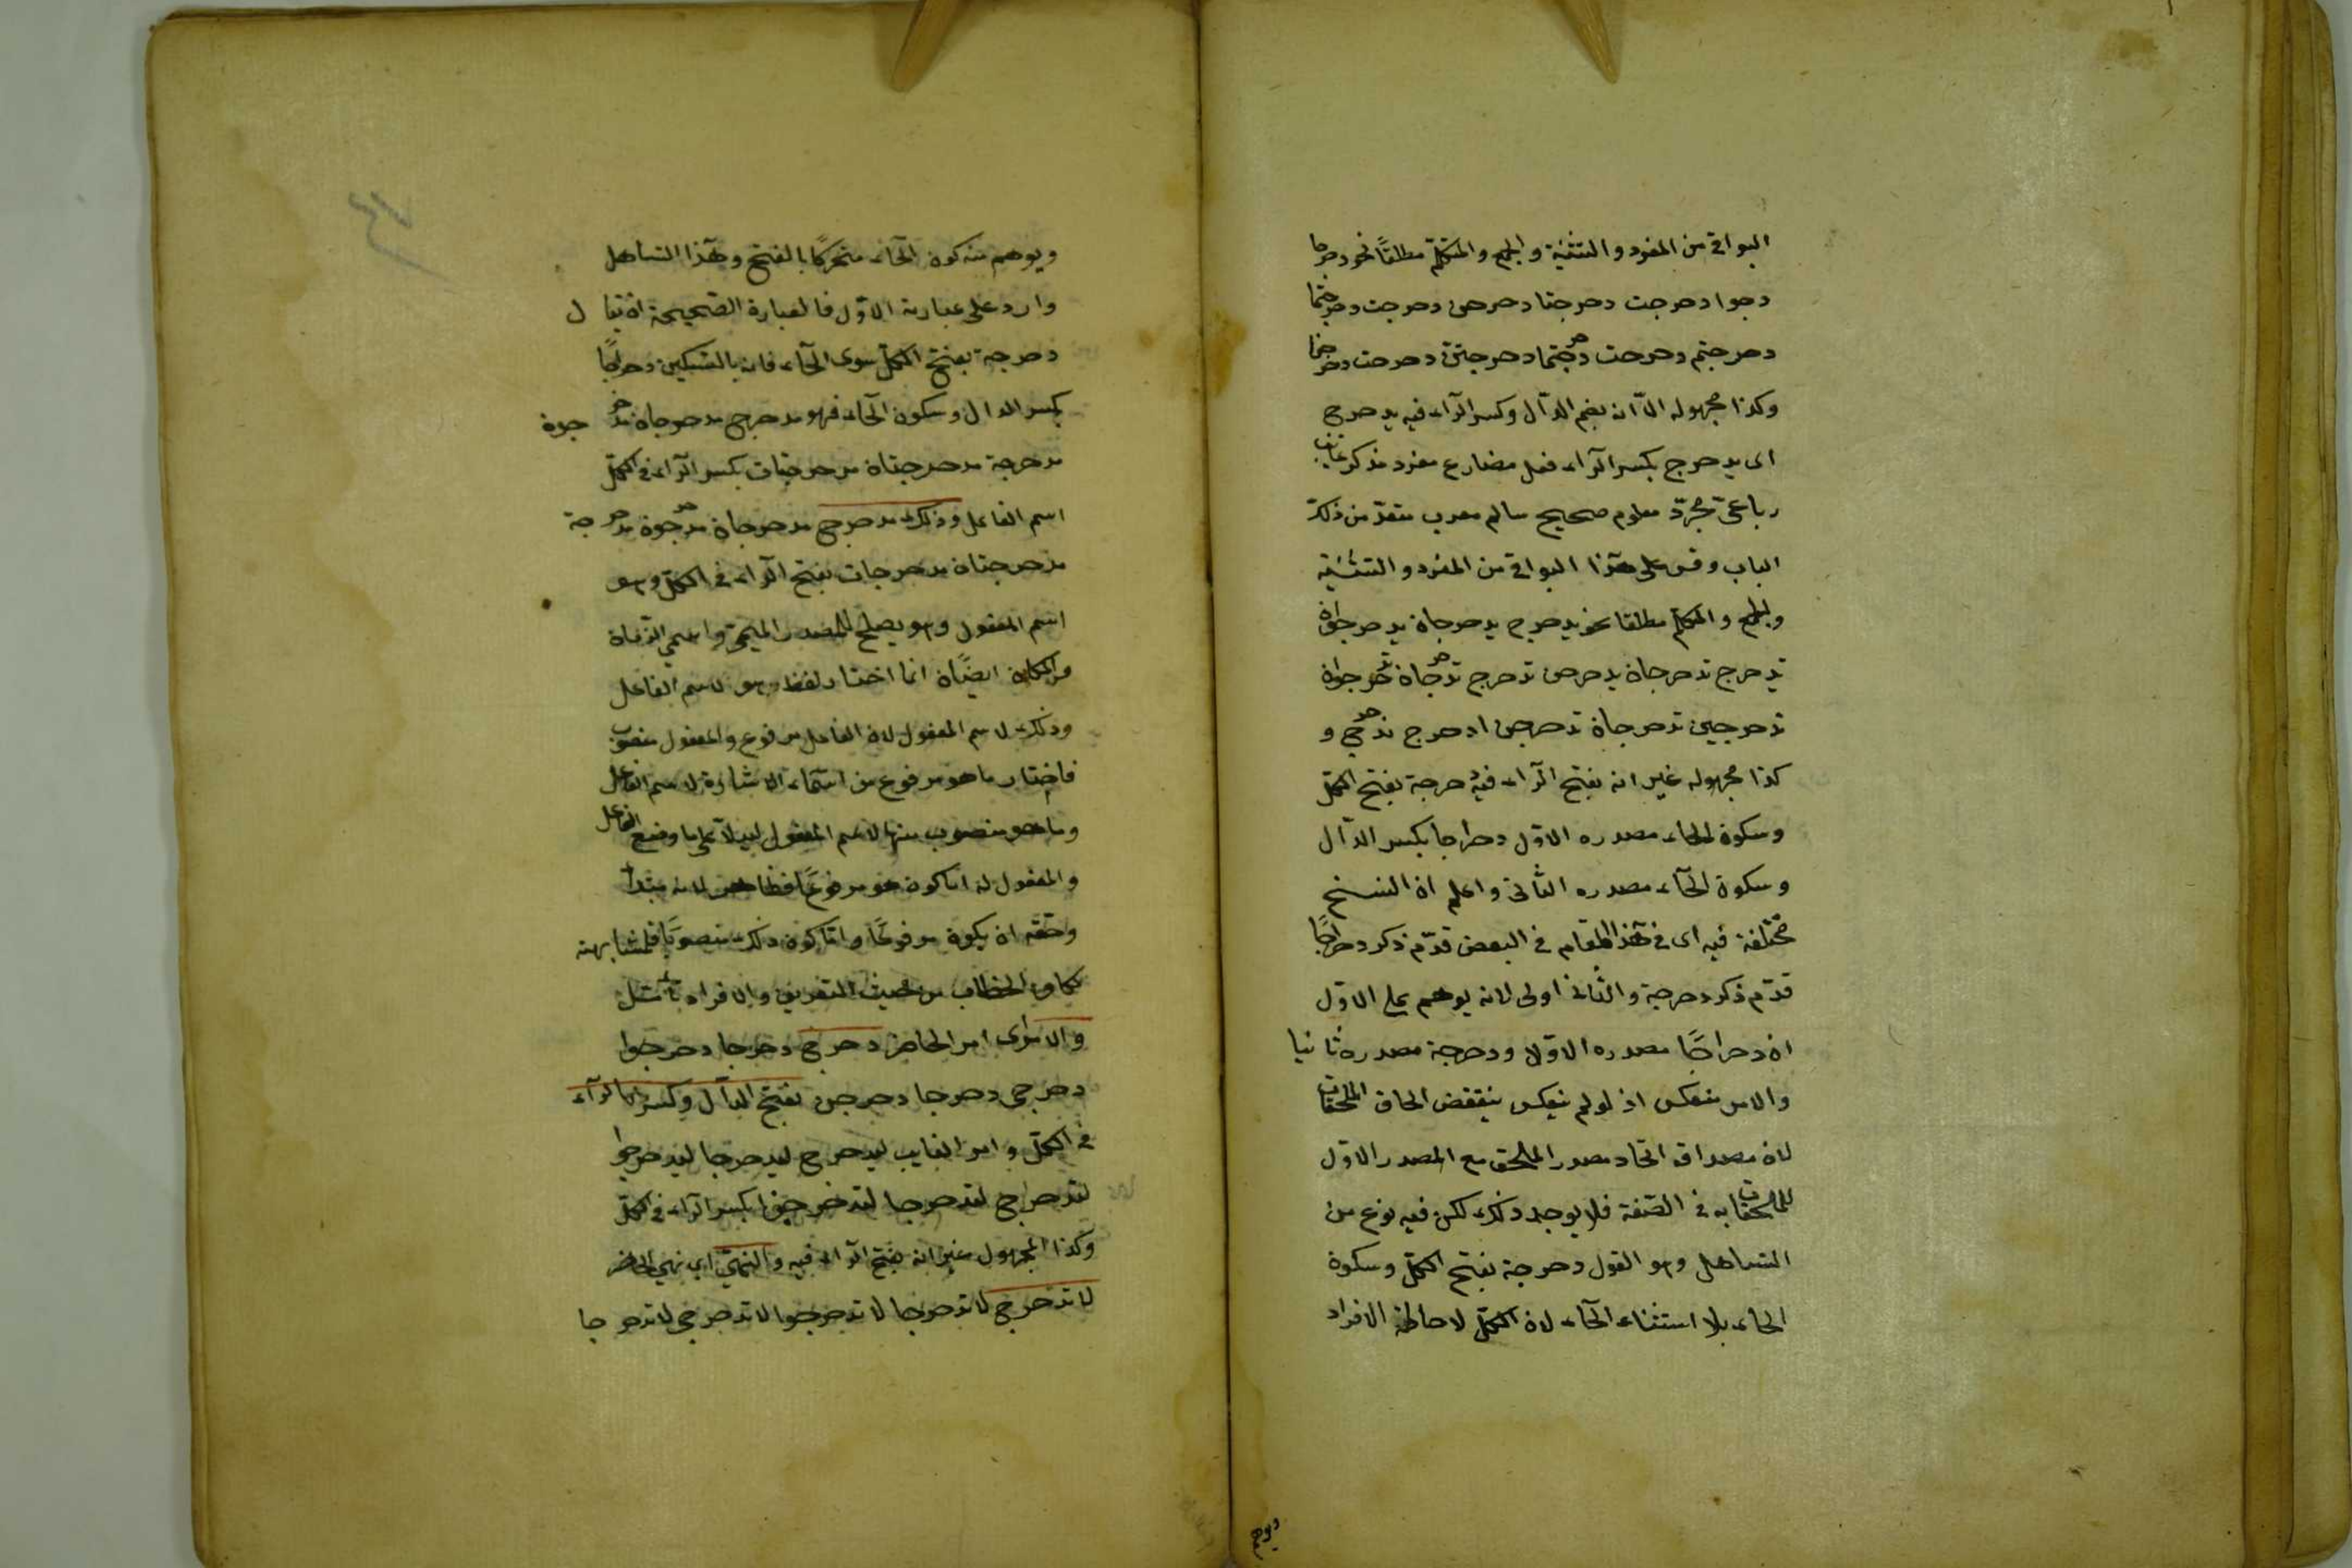 البواقى من المفرد والتثنية والجمع والمتكلم مطلقًا نحو دحرجا
دحرجوا دحرجت دحرجتا دحرجن دحرجت دحرجتما
دحرجتم دحرجت دحرجتما دحرجتن دحرجت دحرجنا
وكذا مجهوله الّا انه بضم الدّال وكسر الرّاء فيه يدحرج
اى يدحرج بكسر الرّاء فعل مضارع مفرد مذكر غائب
رباعىّ مجرّد معلوم صحيح سالم معرب متعدّ من ذلك
الباب وقس على هذا البواقى من المفرد والتثنية
والجمع والمتكلم مطلقا نحو يدحرج يدحرجان يدحرجوان
تدحرج تدحرجان يدحرجن تدحرج تدحرجان تدحرجوان
تدحرجين تدحرجان تدحرجن ادحرج ندحرج و
كذا مجهوله غير انه بفتح الرّاء فيه دحرجة بفتح الكلّ
وسكون الحاء مصدره الاوّل دحراجا بكسر الدّال
وسكون الحآء مصدره الثّانى واعلم ان النسخ
مختلفة فيه اى فى هذا المقام فى البعض قدّم ذكر دحراجًا
قدّم ذكر دحرجة والثّانى اولى لانه يوهم على الاوّل
ان دحراجًا مصدره الاوّل ودحرجة مصدره ثانيا
والامر منعكس اذ لو لم ينعكس ينتقض الحاق الملحقات
لان مصداقه اتحاد مصدر الملحق مع المصدر الاوّل
للملحقات به فى الصّفة فلا يوجد ذلك لكن فيه نوع من
التساهل وهو القول دحرجة بفتح الكلّ وسكون
الحاء بلا استثناء الحآء لان الكلّ لاحاطة الافراد
ويوهم
ويوهم منه كون الحآء متحركًا بالفتح وهذا التساهل
وارد على عبارته الاوّل فالعبارة الصّحيحة ان يقال
دحرجة بفتح الكلّ سوى الحآء فانه بالتسكين دحراجًا
بكسر الدال وسكون الحآء فهو مدحرج مدحرجان مدحرجون
مدحرجة مدحرجتان مدحرجات بكسر الرّاء فى الكلّ
اسم الفاعل وذلك مدحرج مدحرجان مدحرجون مدحرجة
مدحرجتان مدحرجات بفتح الرّاء فى الكلّ وهو
اسم المفعول وهو يصلح للمصدر الميمى واسمي الزّمان
والمكان ايضًا انما اختار لفظ هو لاسم الفاعل
وذلك لاسم المفعول لان الفاعل مرفوع والمفعول منصوب
فاختار ما هو مرفوع من اسماء الاشارة لاسم الفاعل
وما هو منصوب منها لاسم المفعول ليدلّا على ما وضع الفاعل
والمفعول له امّا كون هو مرفوعًا فظاهر لانه مبتدأ
وحقه ان يكون مرفوعًا وامّا كون ذلك منصوبًا فلمشابهته
كاف الخطاب من حيث التعريف والافراد تأمّل
والامر اى امر الحاضر دحرج دحرجا دحرجوا
دحرجى دحرجا دحرجن بفتح الدّال وكسر الرّآء
فى الكلّ وامر الغايب ليدحرج ليدحرجا ليدحرجوا
لتدحرج لتدحرجا ليدحرجن بكسر الرّاء فى الكلّ
وكذا المجهول غير انه بفتح الرّاء فيه والنهى اى نهى الحاضر
لا تدحرج لا تدحرجا لا تدحرجوا لا تدحرجى لا تدحرجا